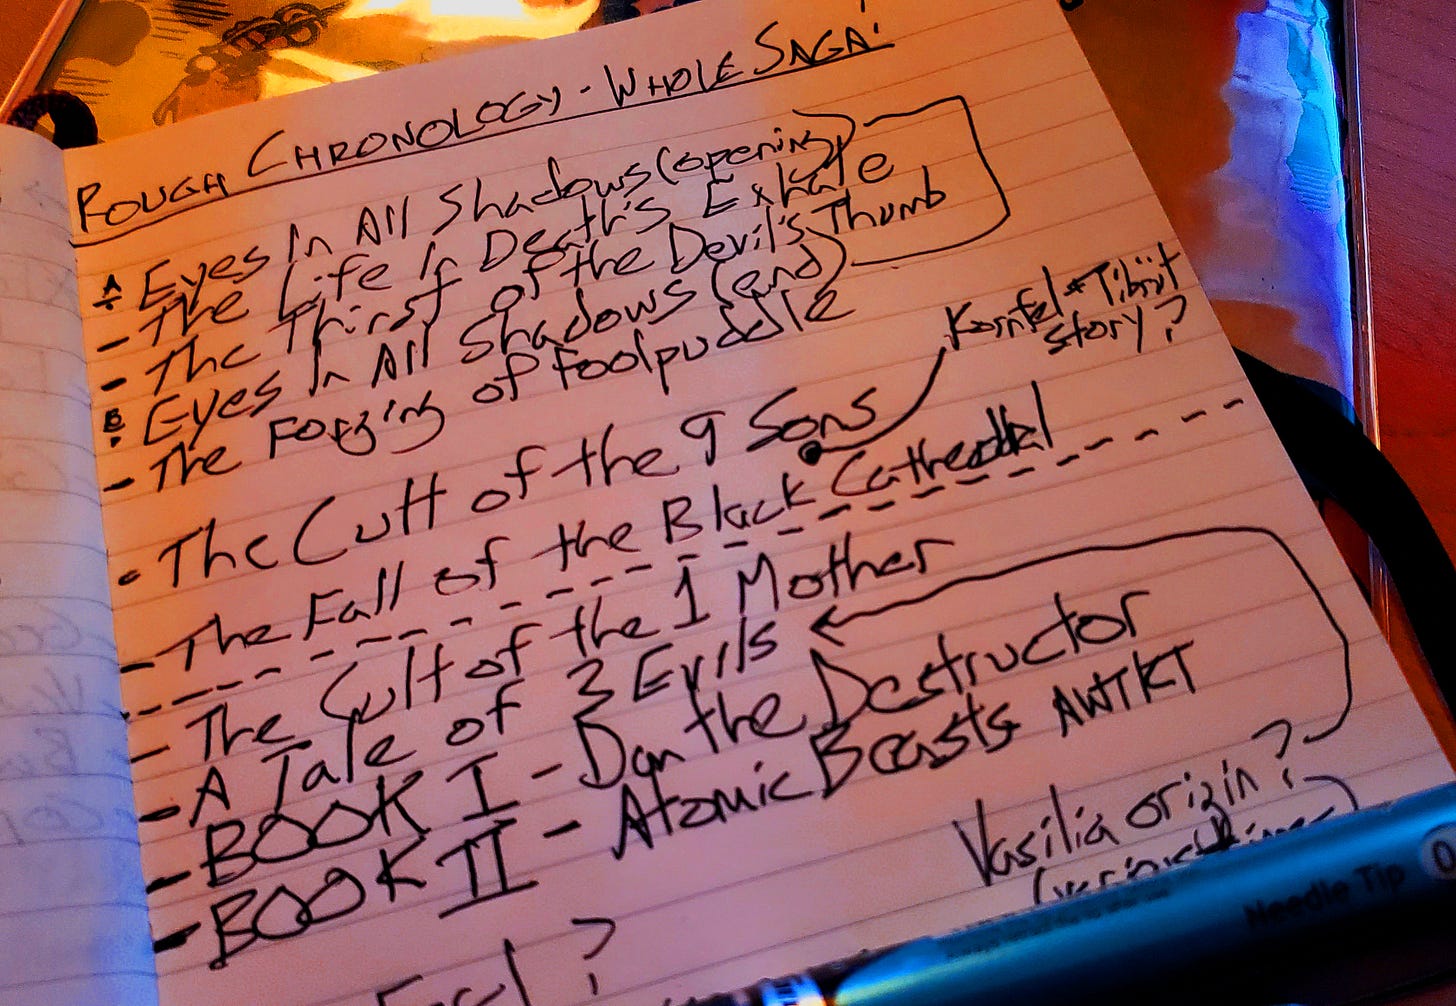 ROUGH CHRONOLOGY - WHOLE SAGA:
A. Eyes In All Shadows (opening)
- The Life In Death's Exhale
- The Thirst of the Devil's Thumb
B. Eyes In All Shadows (end)
- The Forging of Foolpuddle
Kornfel + Tibrit
story?
• The Cult of the 9 Sons
- The Fall of the Black Cathedral
- The Cult of the 1 Mother
- A Tale of 3 Evils
- BOOK I - Dan the Destructor
- BOOK II - Atomic Beasts AWTKT
Vasilia origin?
?
Needle Tip